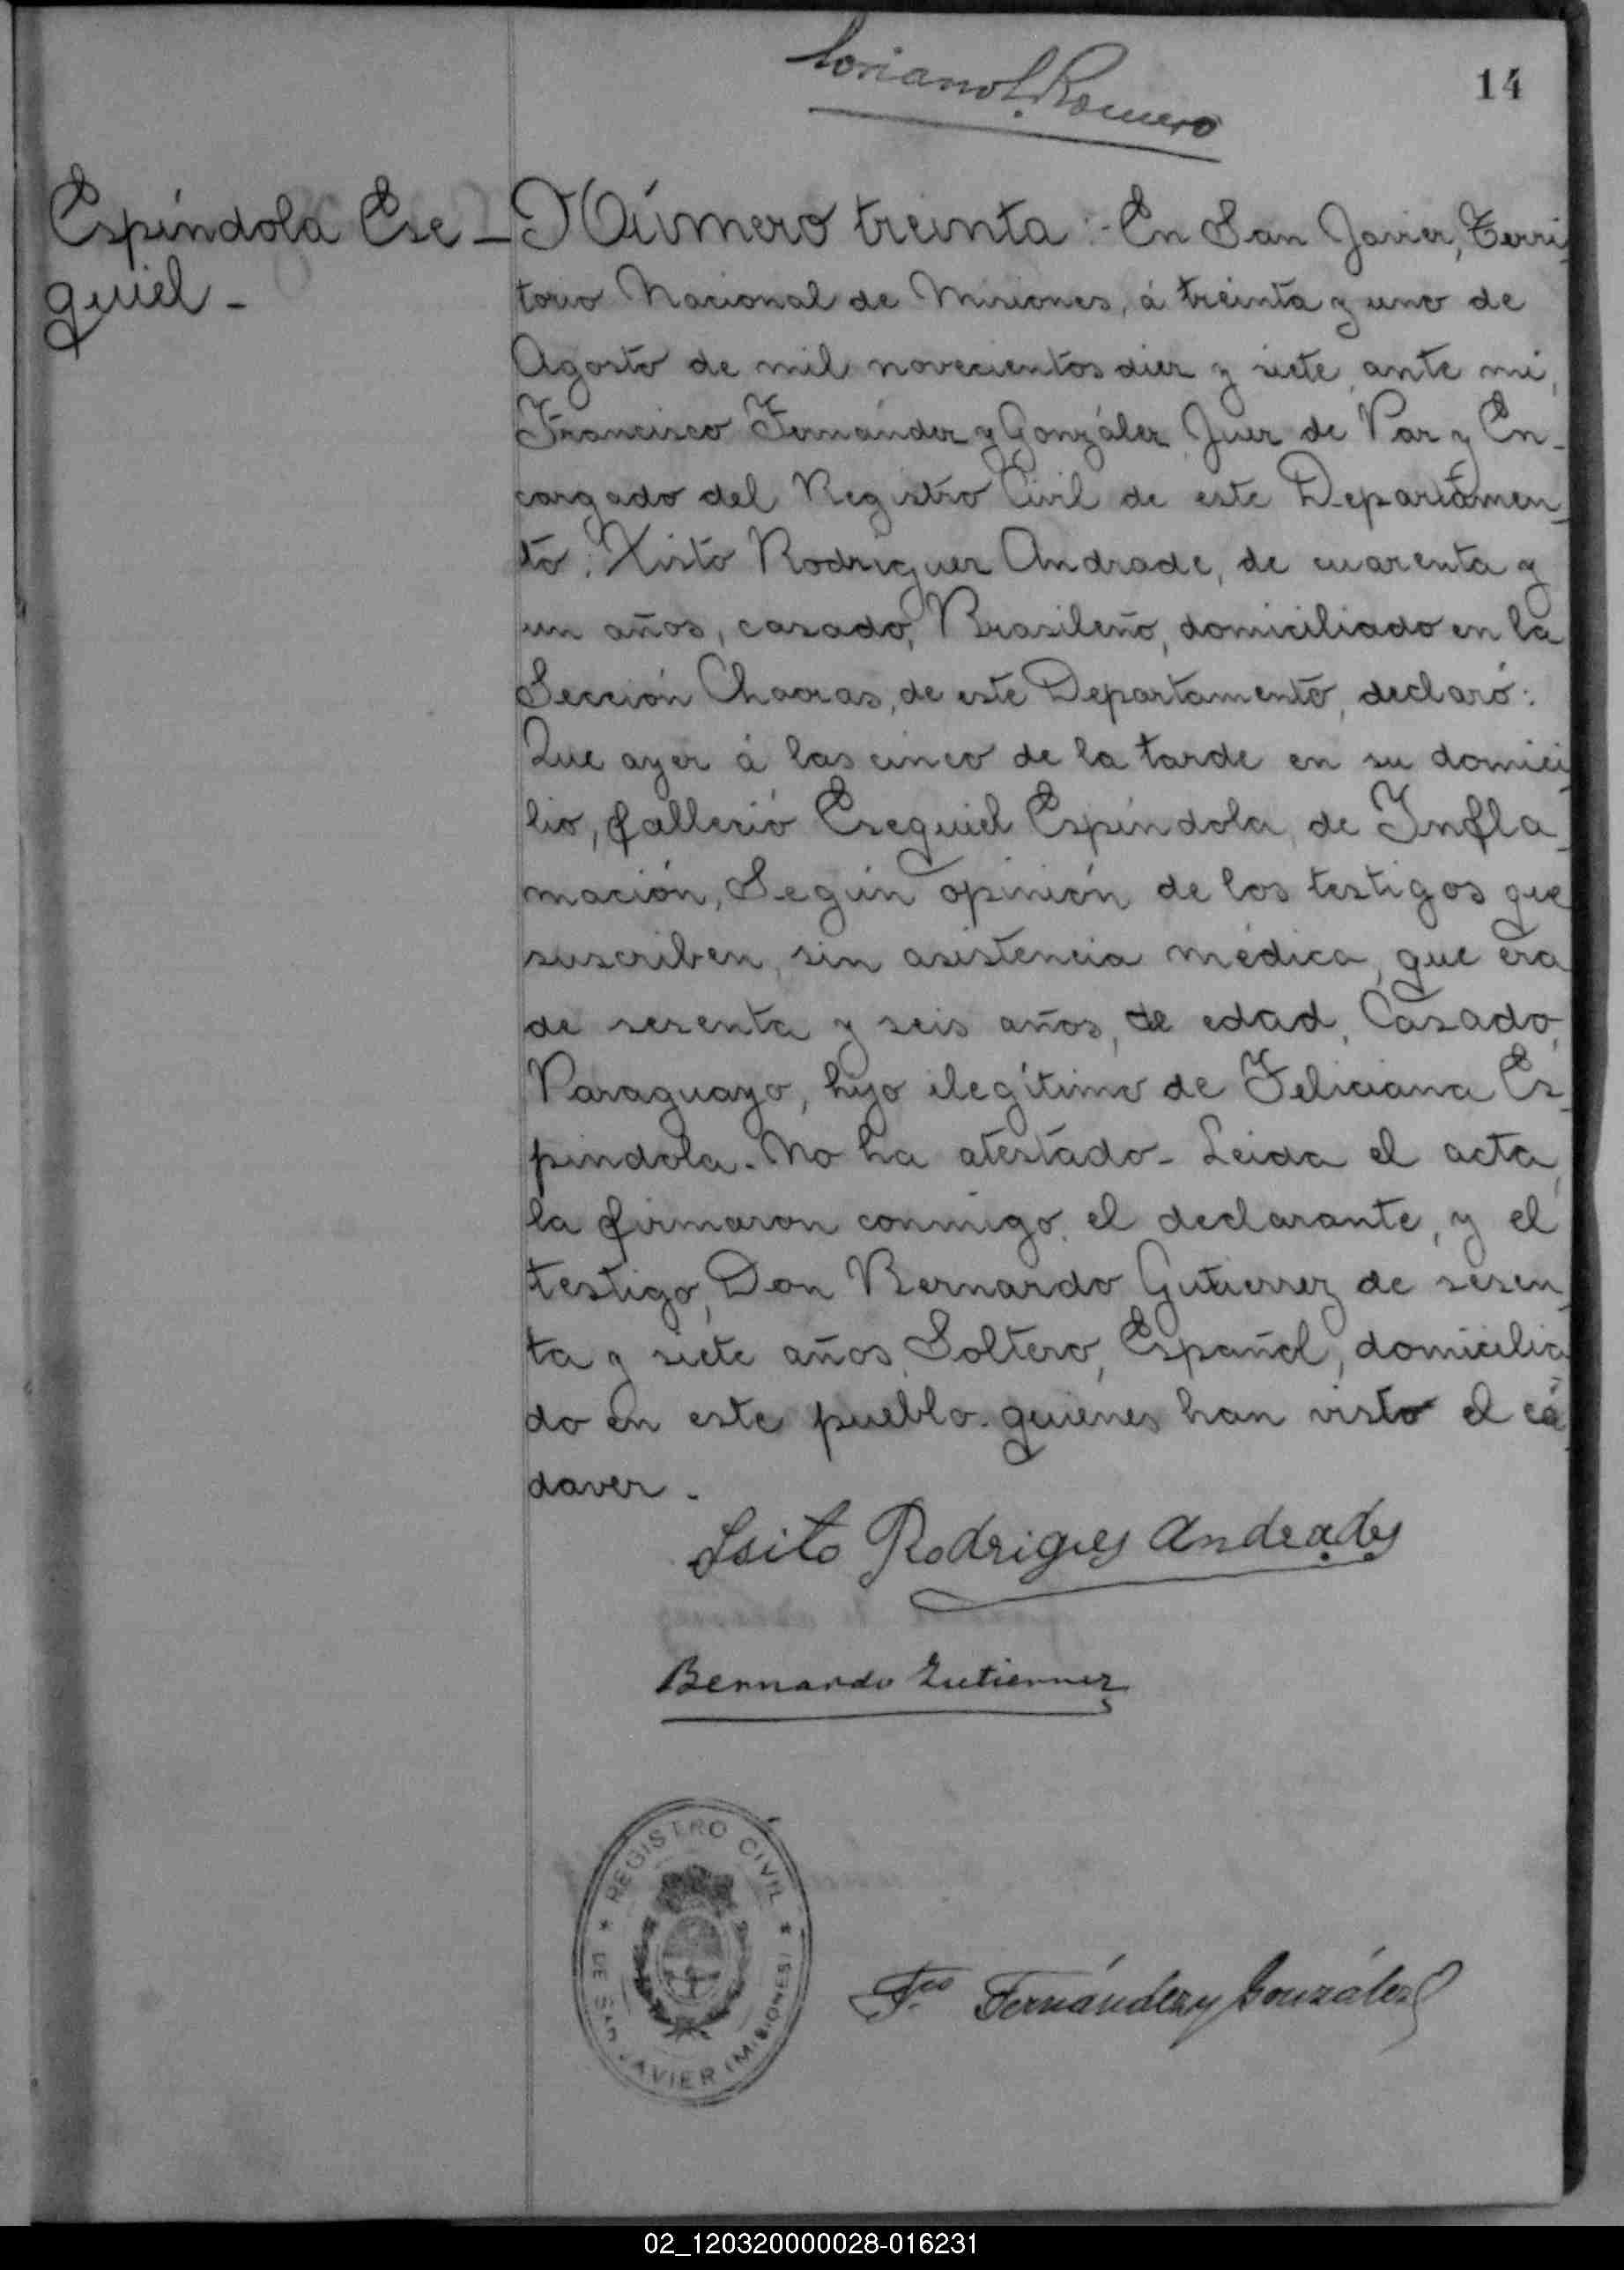 Soriano L. Romero
14
Espíndola Ese-
quiel-
Número treinta:- En San Javier, Terri-
torio Nacional de Misiones, á treinta y uno de
Agosto de mil novecientos diez y siete, ante mi,
Francisco Fernández y González, Juez de Paz y En-
cargado del Registro Civil de este Departamen-
to: Xisto Rodriguez Andrade, de cuarenta y
un años, casado, Brasileño, domiciliado en la
Sección Chacras, de este Departamento, declaró:
Que ayer á las cinco de la tarde en su domici-
lio, falleció Esequiel Espíndola, de Infla-
mación, Según opinión de los testigos que
suscriben, sin asistencia médica, que era
de sesenta y seis años, de edad, Casado,
Paraguayo, hijo ilegítimo de Feliciana Es-
pindola. No ha atestado- Leida el acta,
la firmaron conmigo, el declarante, y el
testigo, Don Bernardo Gutierrez de sesen-
ta y siete años, Soltero, Español, domicilia-
do en este pueblo. quienes han visto el cá-
daver.
Isito Rodrigues Andrades
Bernardo Gutierrez
REGISTRO CIVIL
DE SAN JAVIER (MISIONES)
Fco Fernández y González
02_120320000028-016231